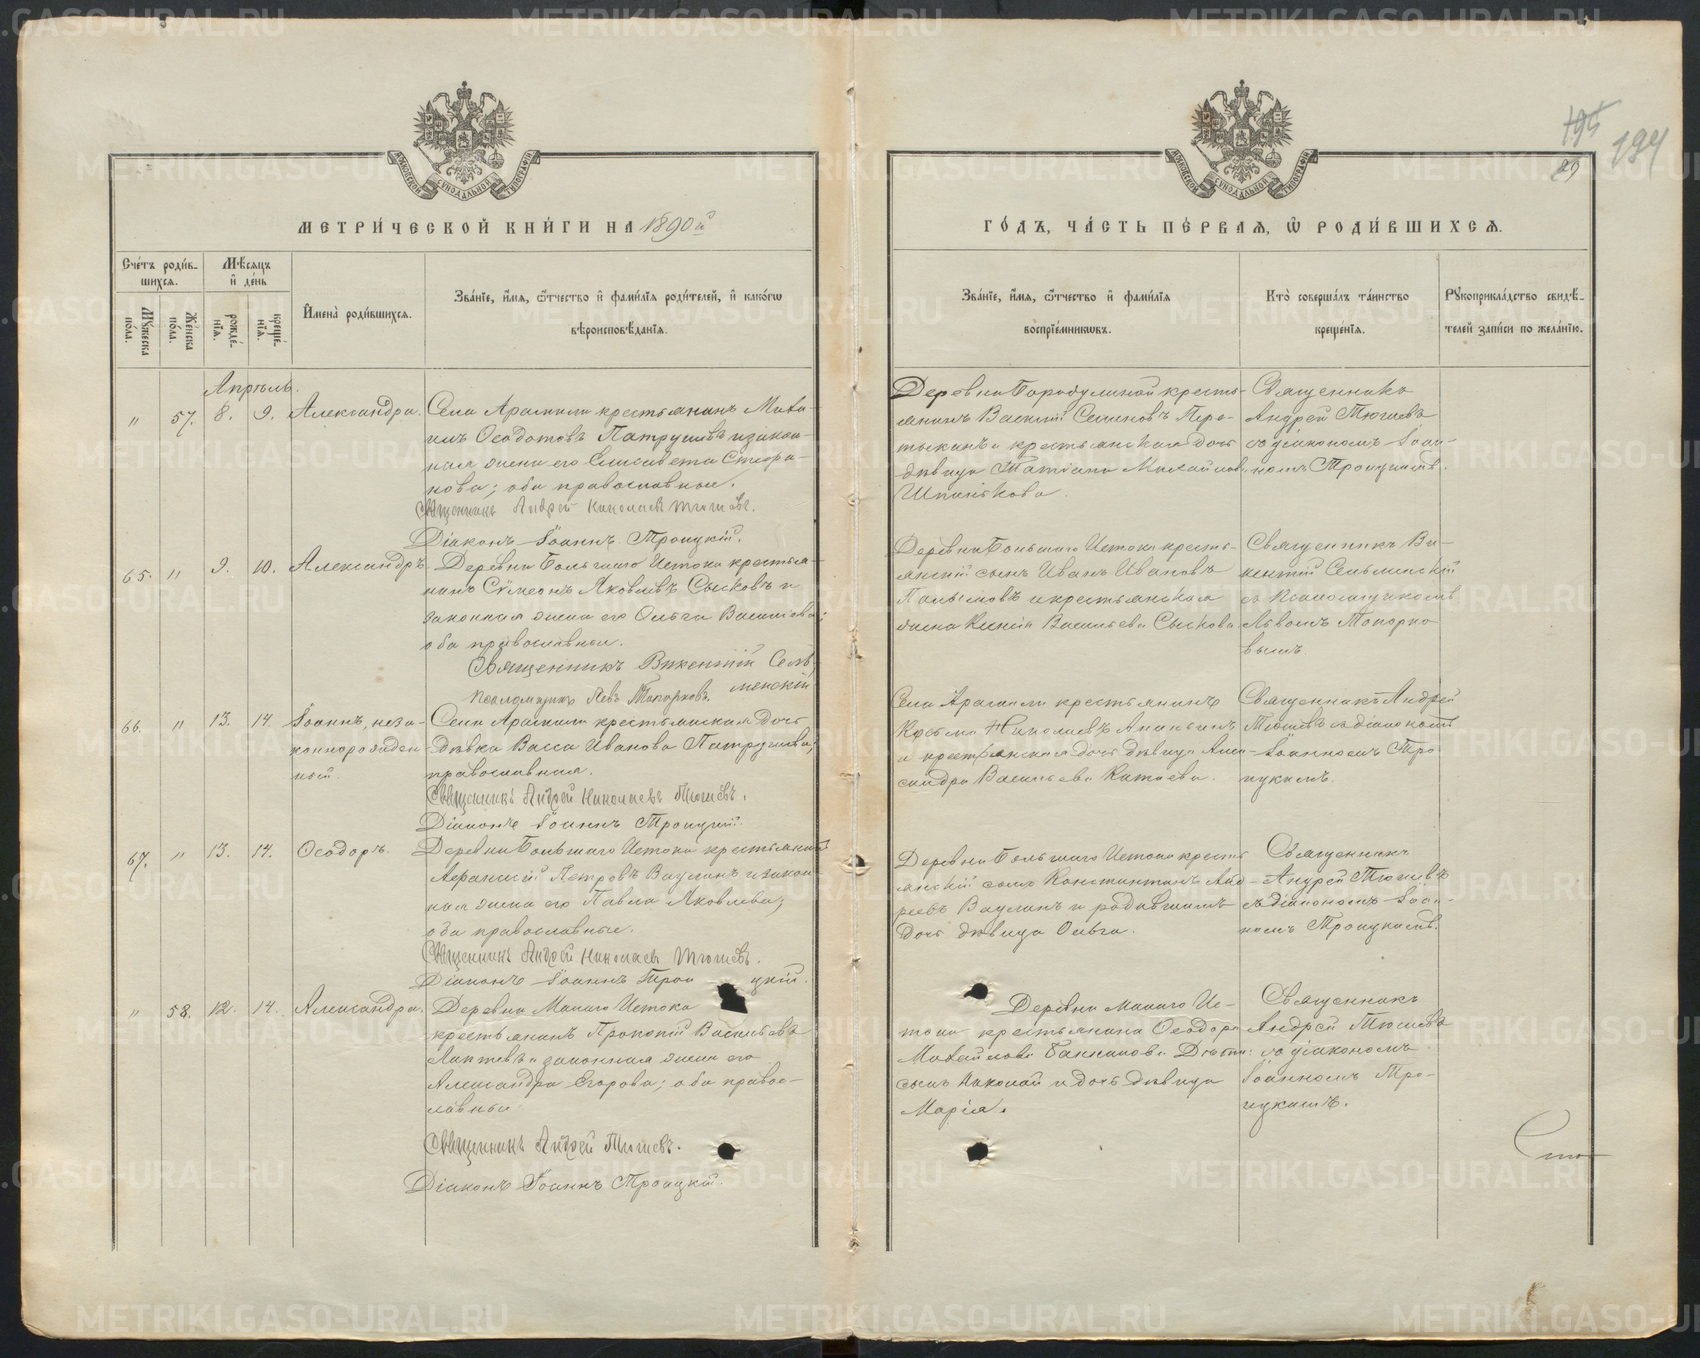 195
194
29
МЕТРИЧЕСКОЙ КНИГИ НА 1890й
ГОДЪ, ЧАСТЬ ПЕРВАЯ, Ѡ РОДИВШИХСЯ.
Счетъ родив-
шихся.
Мѣсяцъ
и день
Мужеска пола.
Женска пола.
рожденія.
крещенія.
Имена родившихся.
Званіе, имя, отчество и фамилія родителей, и какого
вѣроисповѣданія.
Званіе, имя, отчество и фамилія
воспріемниковъ.
Кто совершалъ таинство
крещенія.
Рукоприкладство свидѣ-
телей записи по желанію.
Апрѣль.
" 57. 8. 9. Александра.
Села Арамили крестьянинъ Миха-
илъ Ѳеодотовъ Патрушевъ и закон-
ная жена его Елисавета Стефа-
нова; оба православные.
Священникъ Андрей Николаевъ Тюшевъ.
Діаконъ Іоаннъ Троицкій.
Деревни Бородулиной кресть-
янинъ Василій Семеновъ
и крестьянская дочь
дѣвица Татіана Михайлова
Священникъ
Андрей Тюшевъ
съ діакономъ Іоан-
номъ Троицкимъ.
65. " 9. 10. Александръ.
Деревни Большаго Истока крестья-
нинъ Сѵмеонъ Яковлевъ Сысковъ и
законная жена его Ольга Васильева;
оба православные.
Священникъ Викентій Сель-
менскій
Псаломщикъ Левъ Топорковъ.
Деревни Большаго Истока кресть-
янскій сынъ Иванъ Ивановъ
и крестьянская
жена Васильева Сыскова
Священникъ Ви-
кентій Сельменскій
съ псаломщикомъ
Львомъ Топорко-
вымъ.
66. " 13. 14. Іоаннъ, неза-
коннорожден-
ный.
Села Арамили крестьянская дочь
дѣвка Васса Иванова Патрушева;
православная.
Священникъ Андрей Николаевъ Тюшевъ.
Діаконъ Іоаннъ Троицкій.
Села Арамили крестьянинъ
Косьма Николаевъ Ананьинъ
и крестьянская дочь дѣвица Алек-
сандра Васильева Китаева.
Священникъ Андрей
Тюшевъ съ діакономъ
Іоанномъ Тро-
ицкимъ.
67. " 13. 14. Ѳеодоръ.
Деревни Большаго Истока крестьянинъ
Аѳанасій Петровъ Ваулинъ и закон-
ная жена его Павла Яковлева;
оба православные.
Священникъ Андрей Николаевъ Тюшевъ.
Діаконъ Іоаннъ Троицкій.
Деревни Большаго Истока кресть-
янскій сынъ Константинъ Анд-
реевъ Ваулинъ и родившимъ
дочь дѣвица Ольга.
Священникъ
Андрей Тюшевъ
съ діакономъ Іоан-
номъ Троицкимъ.
" 58. 12. 14. Александра.
Деревни Малаго Истока
крестьянинъ Прокопій Васильевъ
Лаптевъ и законная жена его
Александра Егорова; оба право-
славные.
Священникъ Андрей Тюшевъ.
Діаконъ Іоаннъ Троицкій.
Деревни Малаго Ис-
тока крестьянина Ѳеодора
Михайлова дѣти:
сынъ Николай и дочь дѣвица
Марія.
Священникъ
Андрей Тюшевъ
съ діакономъ
Іоанномъ Тро-
ицкимъ.
METRIKI.GASO-URAL.RU